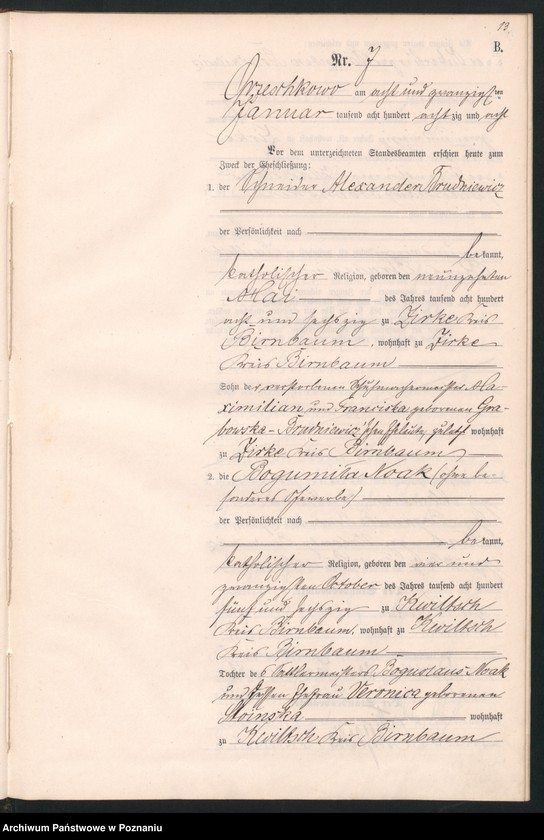 13
B.
Nr. 7
Orzeschkowo am acht und zwanzigsten
Januar tausend acht hundert achtzig und acht
Vor dem unterzeichneten Standesbeamten erschien heute zum
Zweck der Eheschließung:
1. der Schneider Alexander Brudniewicz
der Persönlichkeit nach
bekannt,
katholischer Religion, geboren den neunzehnten
Mai des Jahres tausend acht hundert
acht und sechszig zu Zirke Kreis
Birnbaum, wohnhaft zu Zirke
Kreis Birnbaum
Sohn der verstorbenen Schuhmachermeister Ma-
ximilian und Franciska geborenen Gra-
bowska-Brudniewicz'schen Eheleute, zuletzt wohnhaft
zu Zirke Kreis Birnbaum
2. die Bogumila Noak (ohne be-
sonderes Gewerbe)
der Persönlichkeit nach
bekannt,
katholischer Religion, geboren den vier und
zwanzigsten October des Jahres tausend acht hundert
fünf und sechszig zu Kwiltsch
Kreis Birnbaum, wohnhaft zu Kwiltsch
Kreis Birnbaum
Tochter des Sattlermeisters Boguslaus Noak
und dessen Ehefrau Veronica geborenen
Stoinska wohnhaft
zu Kwiltsch Kreis Birnbaum
Archiwum Państwowe w Poznaniu